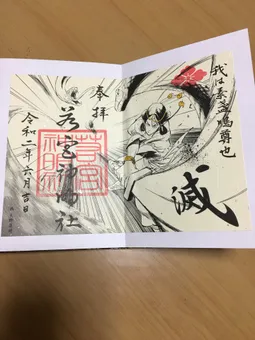 我は素盞嗚尊也
滅
奉拝
若宮神明社
令和二年六月吉日